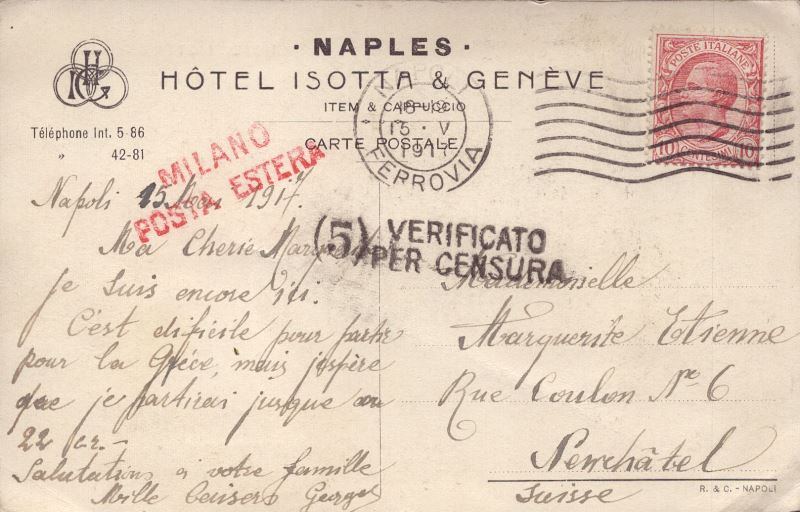 · NAPLES ·
HÔTEL ISOTTA & GENÈVE
ITEM & CAPPUCCIO
CARTE POSTALE
Téléphone Int. 5-86
» 42-81
POSTE ITALIANE
10 CENTESIMI 10
15 · V
1917
FERROVIA
MILANO
POSTA ESTERA
(5) VERIFICATO
PER CENSURA
Napoli 15 Mai 1917.
Ma Cherie Marguerite
je suis encore ici.
C'est dificile pour partir
pour la Gréce, mais j'espère
que je partirai jusque au
22 cr.-
Salutations à votre famille
Mille baisers Georges
Mademoiselle
Marguerite Etienne
Rue Coulon Nr 6
Neuchâtel
Suisse
R. & C. - NAPOLI